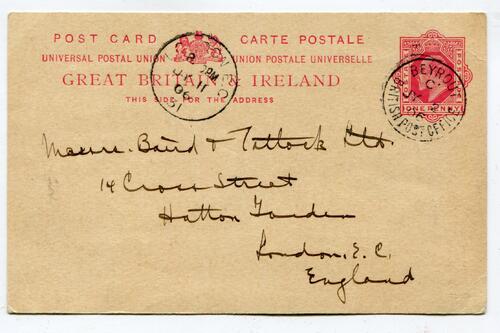 POST CARD CARTE POSTALE
UNIVERSAL POSTAL UNION UNION POSTALE UNIVERSELLE
GREAT BRITAIN & IRELAND
THIS SIDE FOR THE ADDRESS
POSTAGE
ONE PENNY
BEYROUT
C
BRITISH POST OFFICE
LONDON
PM
11
06
Messrs. Baird & Tatlock Ltd.
14 Cross Street
Hatton Garden
London. E. C.
England